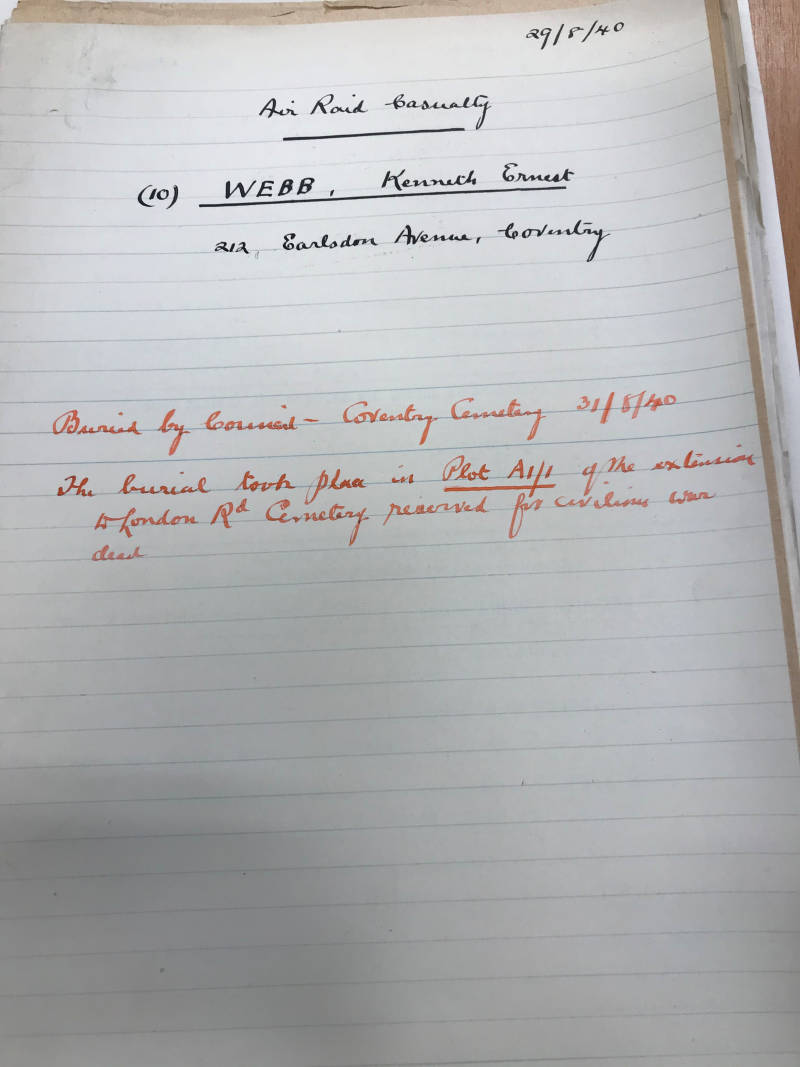 29/8/40
Air Raid Casualty
(10) WEBB, Kenneth Ernest
212, Earlsdon Avenue, Coventry
Buried by Council – Coventry Cemetery 31/8/40
The burial took place in Plot A1/1 of the extension
to London Rd Cemetery reserved for civilians war
dead